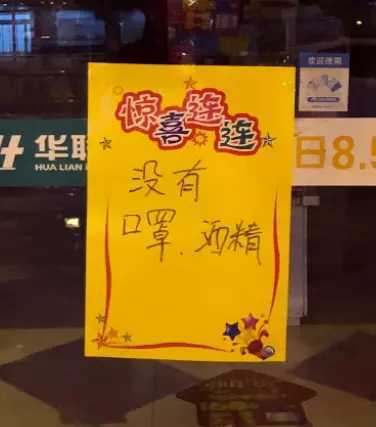 欢迎使用
惊喜连连
华联
HUA LIAN
日8.5
没有
口罩、酒精